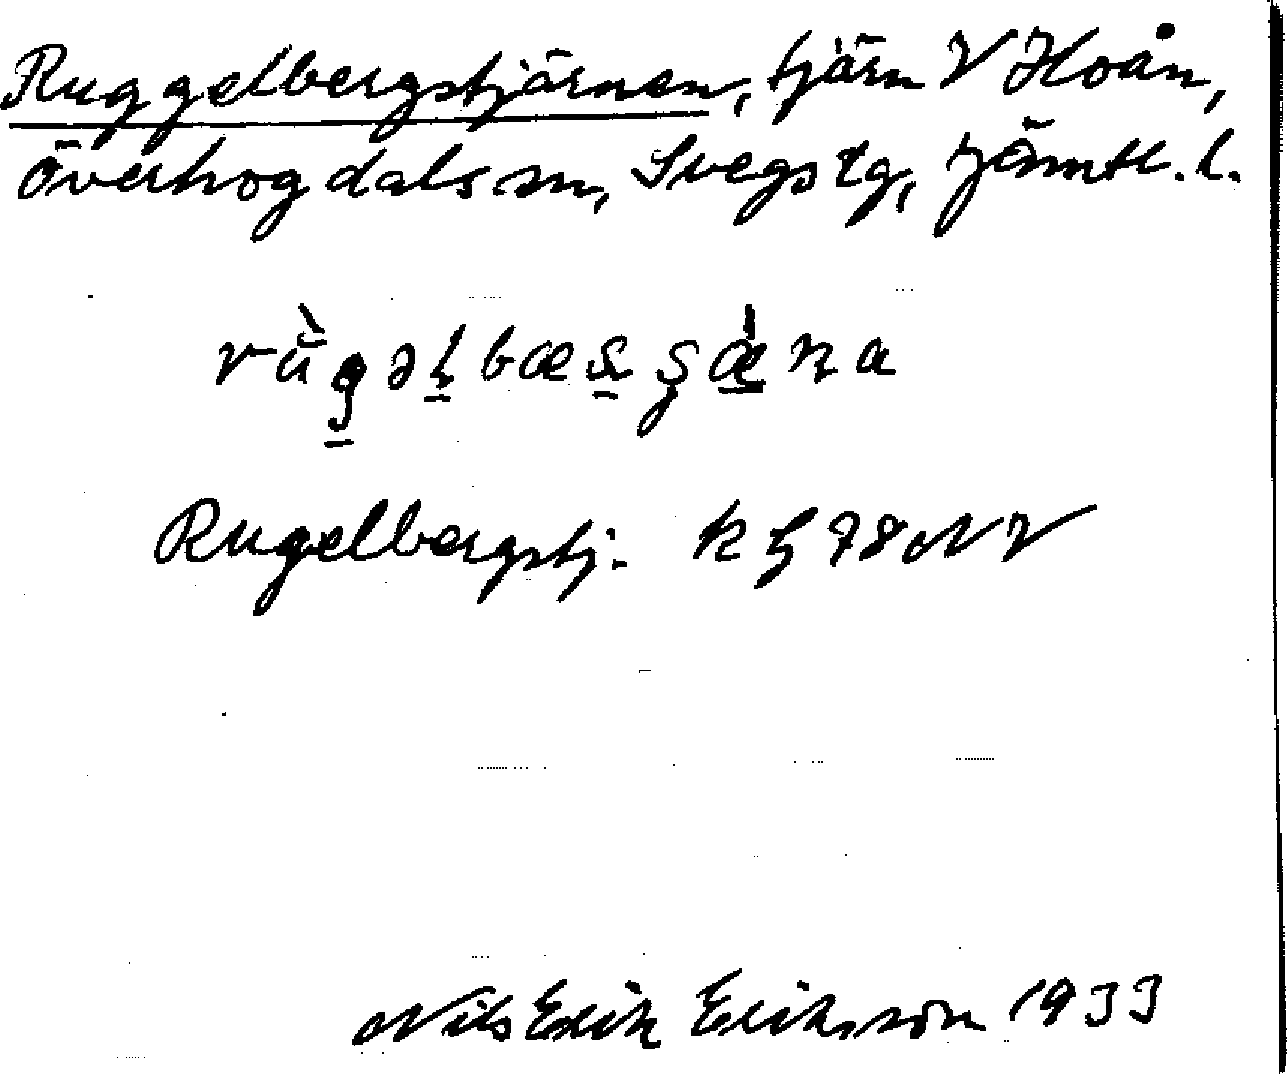 Ruggelbergstjärnen, tjärn V Hoån,
Överhogdals sn, Svegs tg, Jämtl. l.
Rugelbergstj. k ҕ 98 NV
Nils Erik Eriksson 1933